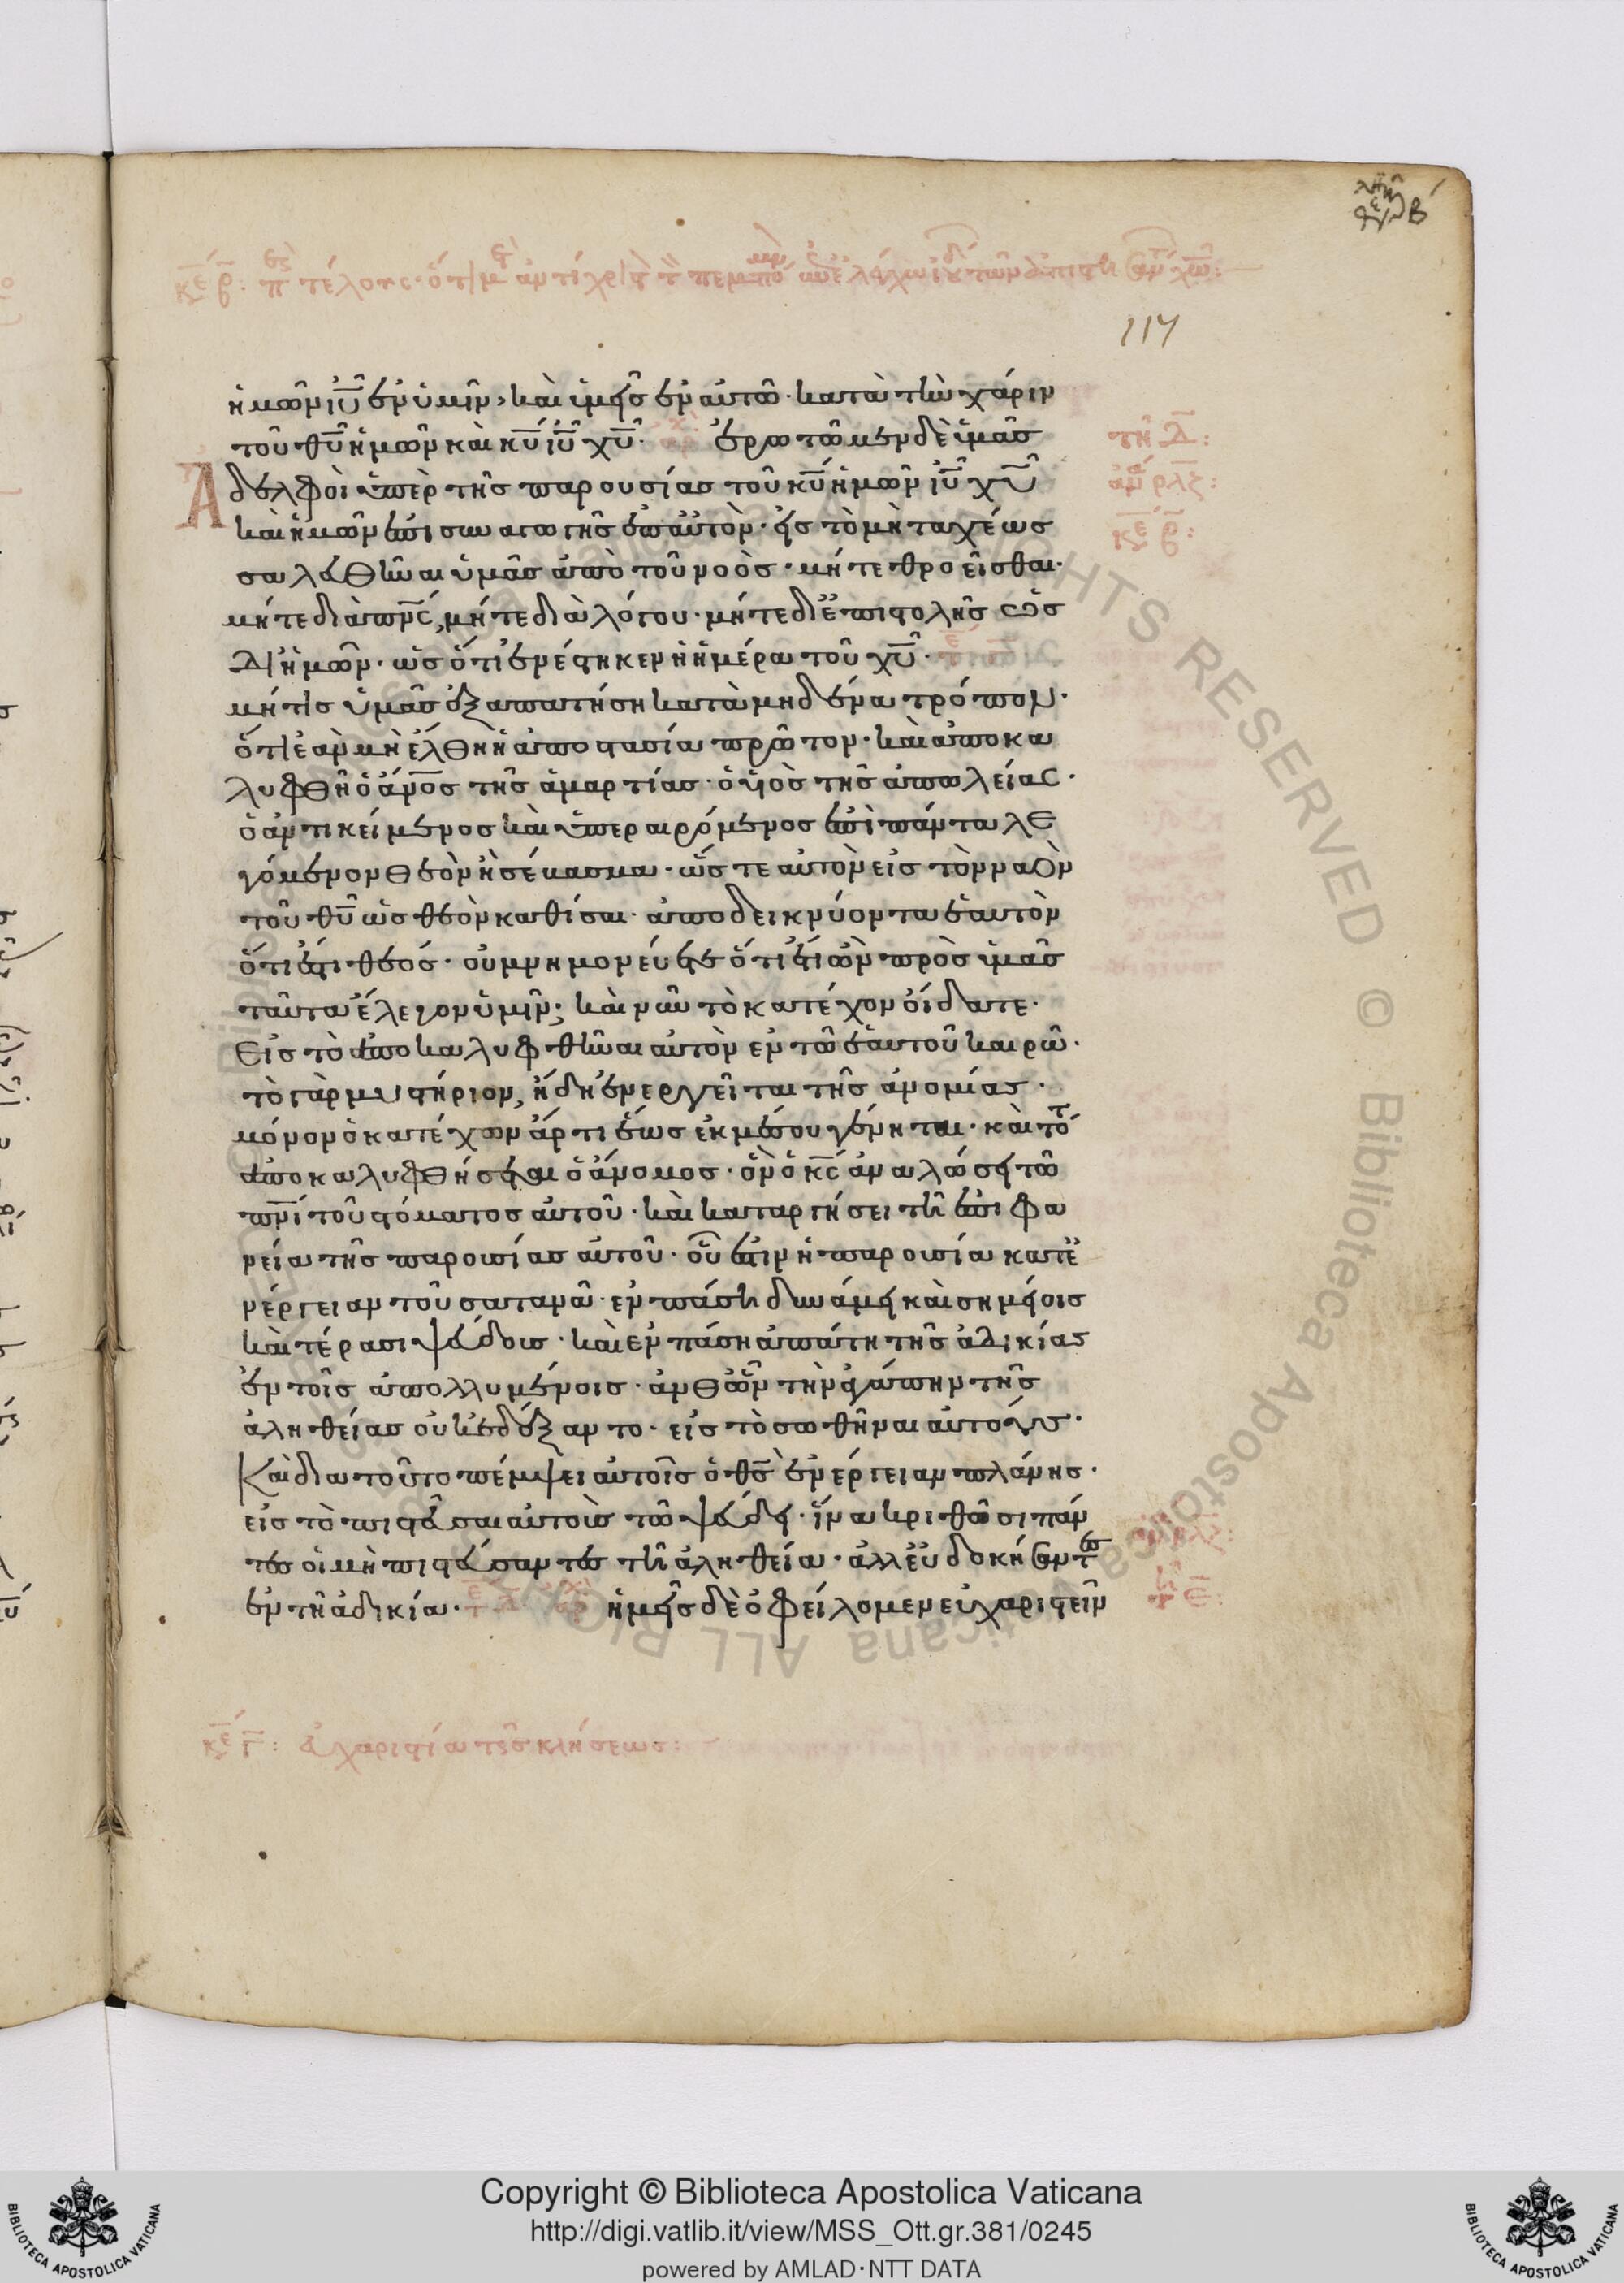 117
ἡμῶν ἰῦ ἐν ὑμῖν, καὶ ὑμεῖς ἐν αὐτῶ· κατὰ τὴν χάριν
τοῦ θῦ ἡμῶν καὶ κῦ ἰῦ χῦ· ἐρωτῶμεν δὲ ὑμᾶς
τῆ Δ:
Ἀδελφοὶ ὑπὲρ τῆς παρουσίας τοῦ κῦ ἡμῶν ἰῦ χῦ
καὶ ἡμῶν ἐπισυναγωγῆς ἐπ αὐτὸν· εἰς τὸ μὴ ταχέως
κε β:
σαλευθῆναι ὑμᾶς ἀπὸ τοῦ νοὸς· μήτε θροεῖσθαι·
μήτε διὰ πνς, μήτε διὰ λόγου· μήτε δι ἐπιστολῆς ὡς
δι ἡμῶν· ὡς ὅτι ἐνέστηκεν ἡ ἡμέρα τοῦ χῦ·
μήτις ὑμᾶς ἐξαπατήση κατὰ μηδένα τρόπον·
ὅτι ἐὰν μὴ ἔλθη ἡ ἀποστασία πρῶτον· καὶ ἀποκα
λυφθῆ ὁ ἄνος τῆς ἁμαρτίας· ὁ υἱὸς τῆς ἀπωλείας·
ὁ ἀντικείμενος καὶ ὑπεραιρόμενος ἐπὶ πάντα λε
γόμενον θεὸν ἢ σέβασμα· ὥστε αὐτὸν εἰς τὸν ναὸν
τοῦ θῦ ὡς θεὸν καθίσαι· ἀποδεικνύοντα ἑαυτὸν
ὅτι ἐστι θεός· οὐ μνημονεύετε ὅτι ἔτι ὢν πρὸς ὑμᾶς
ταῦτα ἔλεγον ὑμῖν; καὶ νῦν τὸ κατέχον οἴδατε·
Εἰς τὸ ἀποκαλυφθῆναι αὐτὸν ἐν τῶ ἑαυτοῦ καιρῶ·
τὸ γὰρ μυστήριον, ἤδη ἐνεργεῖται τῆς ἀνομίας·
μόνον ὁ κατέχων ἄρτι ἕως ἐκ μέσου γένηται· καὶ τότ
ἀποκαλυφθήσεται ὁ ἄνομος· ὃν ὁ κς ἀναλώσει τῶ
πνι τοῦ στόματος αὐτοῦ· καὶ καταργήσει τῆ ἐπιφα
νεία τῆς παρουσίας αὐτοῦ· οὗ ἐστιν ἡ παρουσία κατ ἐ
νέργειαν τοῦ σατανᾶ· ἐν πάση δυνάμει καὶ σημείοις
καὶ τέρασι ψεύδους· καὶ ἐν πάση ἀπάτη τῆς ἀδικίας
ἐν τοῖς ἀπολλυμένοις· ἀνθ ὧν τὴν ἀγάπην τῆς
ἀληθείας οὐκ ἐδέξαντο· εἰς τὸ σωθῆναι αὐτούς·
Καὶ δια τοῦτο πέμψει αὐτοῖς ὁ θς ἐνέργειαν πλάνης·
εἰς τὸ πιστεῦσαι αὐτοὺς τῶ ψεύδει· ἵνα κριθῶσι πάν
τες οἱ μὴ πιστεύσαντες τῆ ἀληθεία· ἀλλ εὐδοκήσαντες
ἐν τῆ ἀδικία· ἡμεῖς δὲ ὀφείλομεν εὐχαριστεῖν
κε γ: εὐχαριστία τῆς κλήσεως:
Copyright © Biblioteca Apostolica Vaticana
http://digi.vatlib.it/view/MSS_Ott.gr.381/0245
powered by AMLAD·NTT DATA